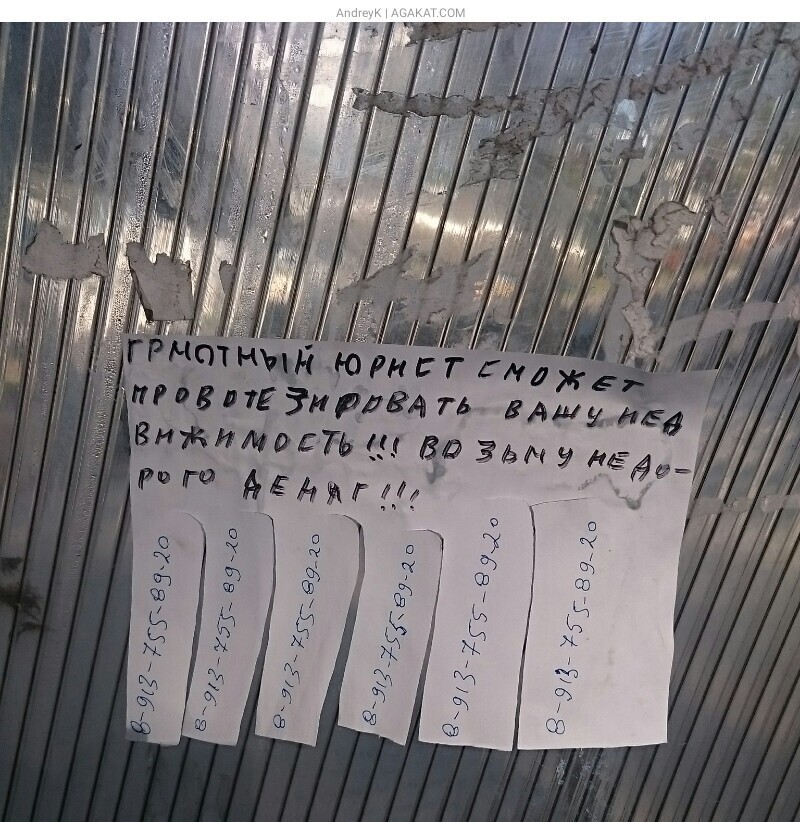 AndreyK | AGAKAT.COM
ГРМОТНЫЙ ЮРНЕТ СМОЖЕТ
ПРОВОТЕЗИРОВАТЬ ВАШУ НЕД
ВИЖИМОСТЬ!!! ВОЗЬМУ НЕДО-
РОГО ДЕНЯГ!!!
8-913-755-89-20
8-913-755-89-20
8-913-755-89-20
8-913-755-89-20
8-913-755-89-20
8-913-755-89-20